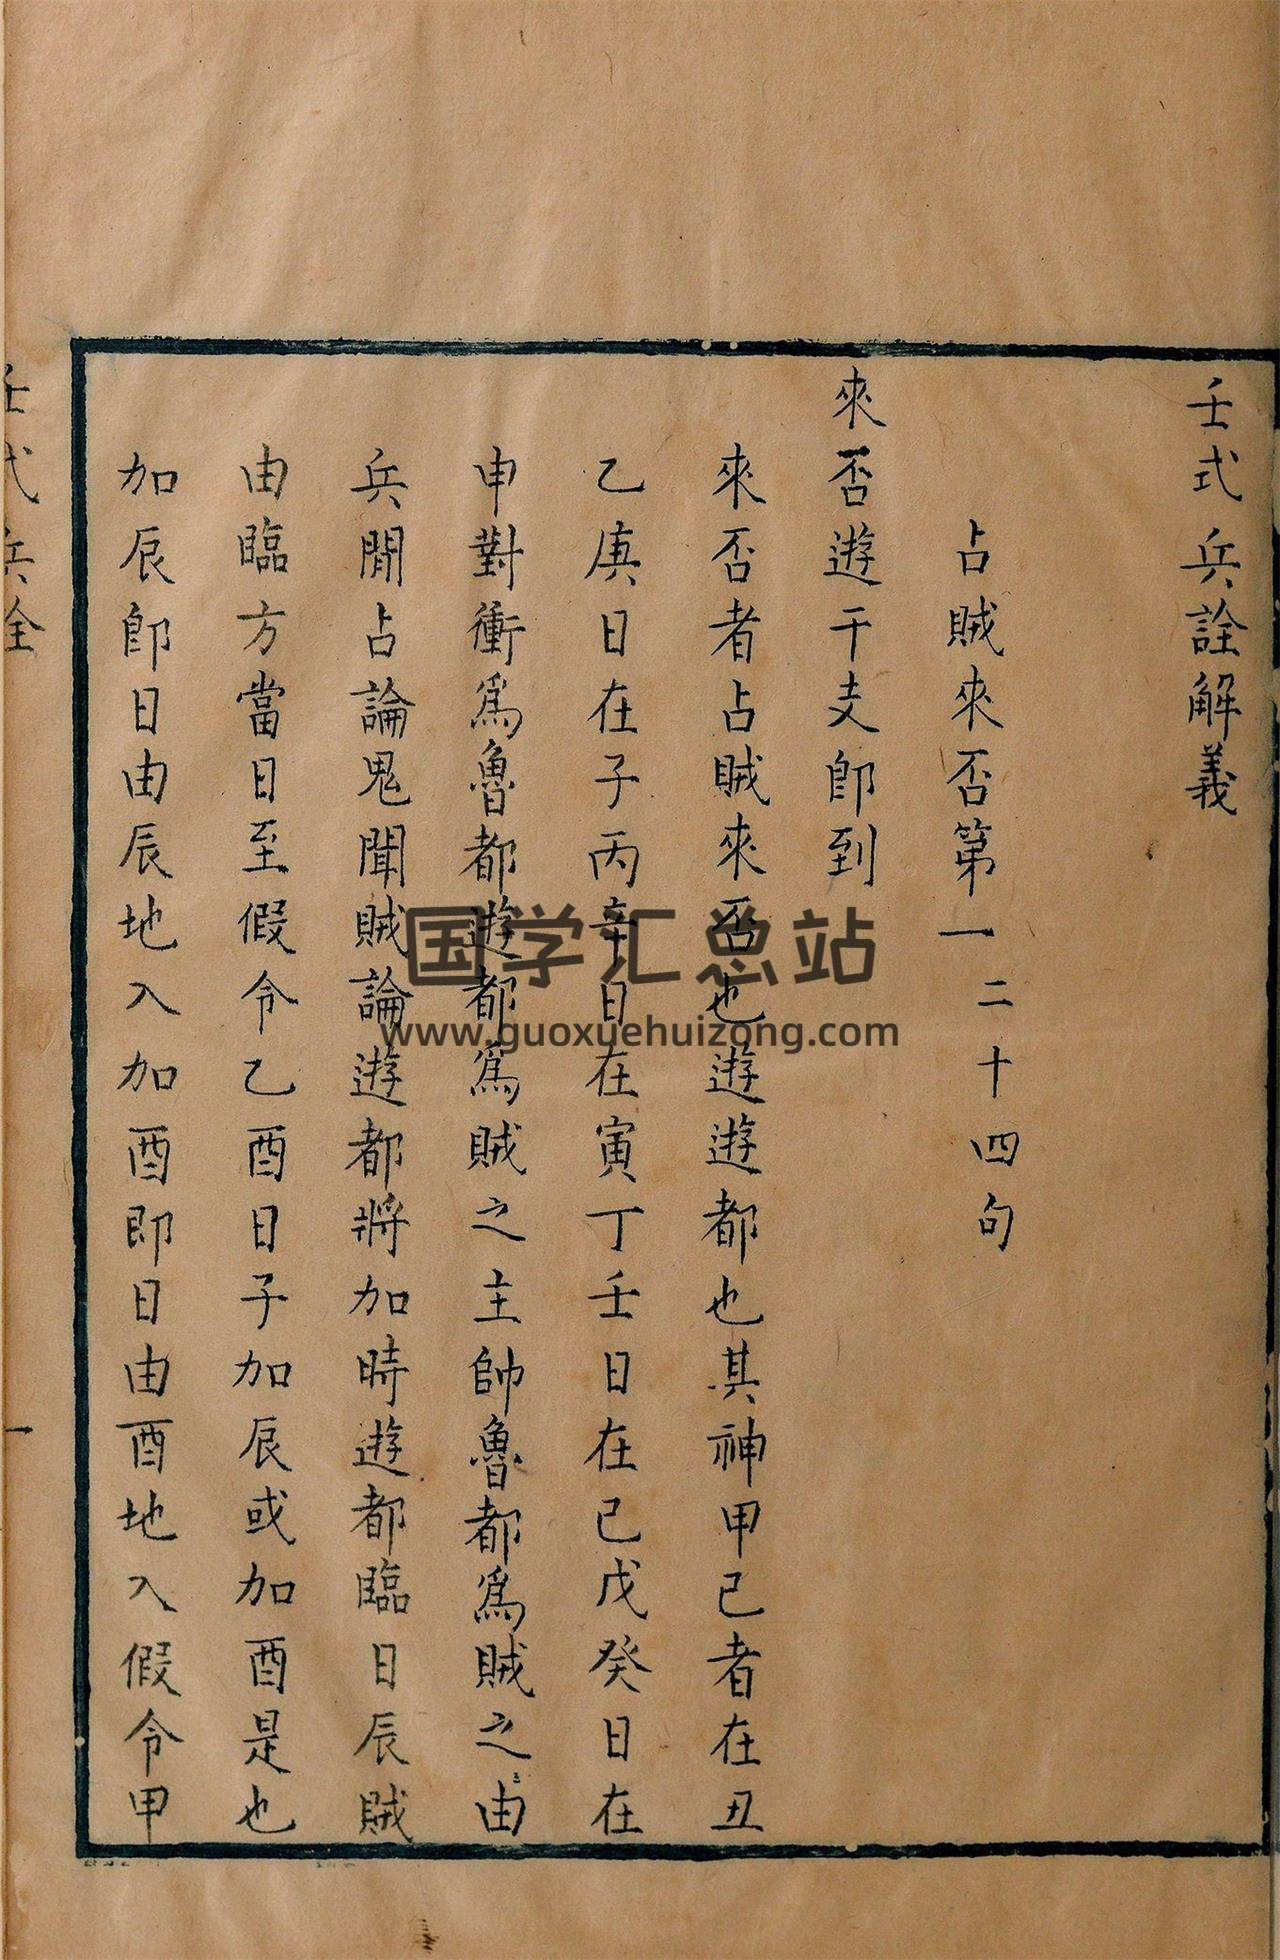 壬式兵詮解義
占賊來否第一 二十四句
來否遊干支即到
來否者占賊來否也遊遊都也其神甲己者在丑
乙庚日在子丙辛日在寅丁壬日在巳戊癸日在
申對衝為魯都遊都為賊之主帥魯都為賊之由
兵閒占論鬼聞賊論遊都將加時遊都臨日辰賊
由臨方當日至假令乙酉日子加辰或加酉是也
加辰即日由辰地入加酉即日由酉地入假令甲
壬式兵詮
一
国学汇总站
www.guoxuehuizong.com